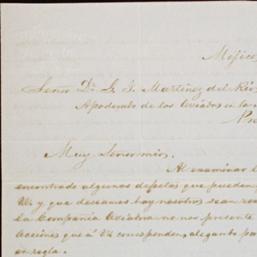 Méjico
Señor Dn. G. J. Martinez del Rio
Apoderado de los Aviados en la
Muy Señor mio.
Al examinar l
encontrado algunos defectos que pueden
Ud. y que deseamos hoy nosotros sean
la Compañia Aviadora nos presente
acciones que á Ud corresponden, alegando pa
en regla.